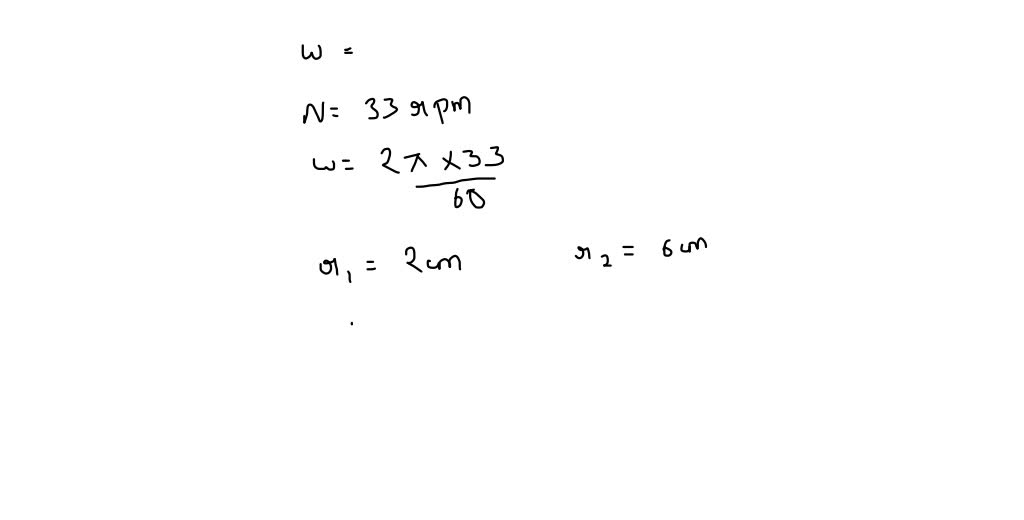 ω =
N = 33 rpm
ω = 2π × 33
60
r₁ = 2cm r₂ = 6cm